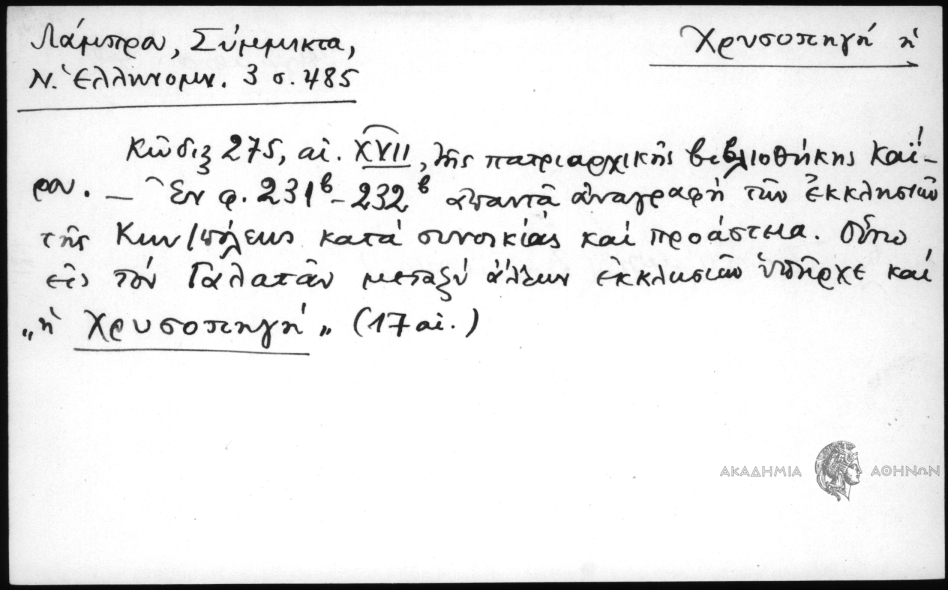 Λάμπρου, Σύμμικτα,
Ν. Ἑλληνομν. 3 σ. 485
Χρυσοπηγή ἡ
Κῶδιξ 275, αἰ. XVII, τῆς πατριαρχικῆς βιβλιοθήκης Καΐ-
ρου. — Ἐν φ. 231β – 232β ἀπαντᾶ ἀναγραφή τῶν ἐκκλησιῶν
τῆς Κων/πόλεως κατά συνοικίας και προάστεια. Οὕτω
εἰς τόν Γαλατᾶν μεταξύ ἄλλων ἐκκλησιῶν ὑπῆρχε καί
„ἡ Χρυσοπηγή„ (17 αἰ.)
ΑΚΑΔΗΜΙΑ ΑΘΗΝΩΝ